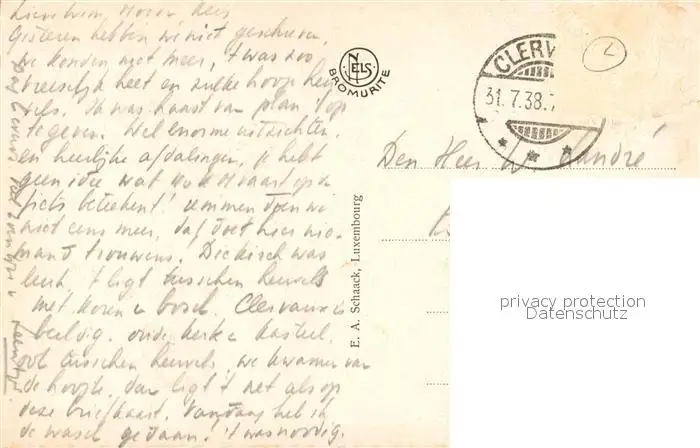 Gisteren hebben we niet geschreven,
we konden niet meer, 't was zoo
vreeselijk heet en zulke hooge heu-
vels. Ik was haast van plan 't op
te geven. Wel enorme uitzichten
en heerlijke afdalingen, je hebt
geen idee wat
fiets beteekent! zwemmen doen we
niet eens meer, dat doet hier nie-
mand trouwens. Diekirch was
leuk, 't ligt tusschen heuvels
met koren & bosch. Clervaux is
beeldig. oude kerk & kasteel.
ook tusschen heuvels, we kwamen van
de hoogte, dan ligt 't net als op
deze briefkaart. Vandaag heb ik
de wasch gedaan! 't was noodig.
NELS
BROMURITE
CLERV
31.7.38.
L
Den Heer W. Landré
E. A. Schaack, Luxembourg
privacy protection
Datenschutz